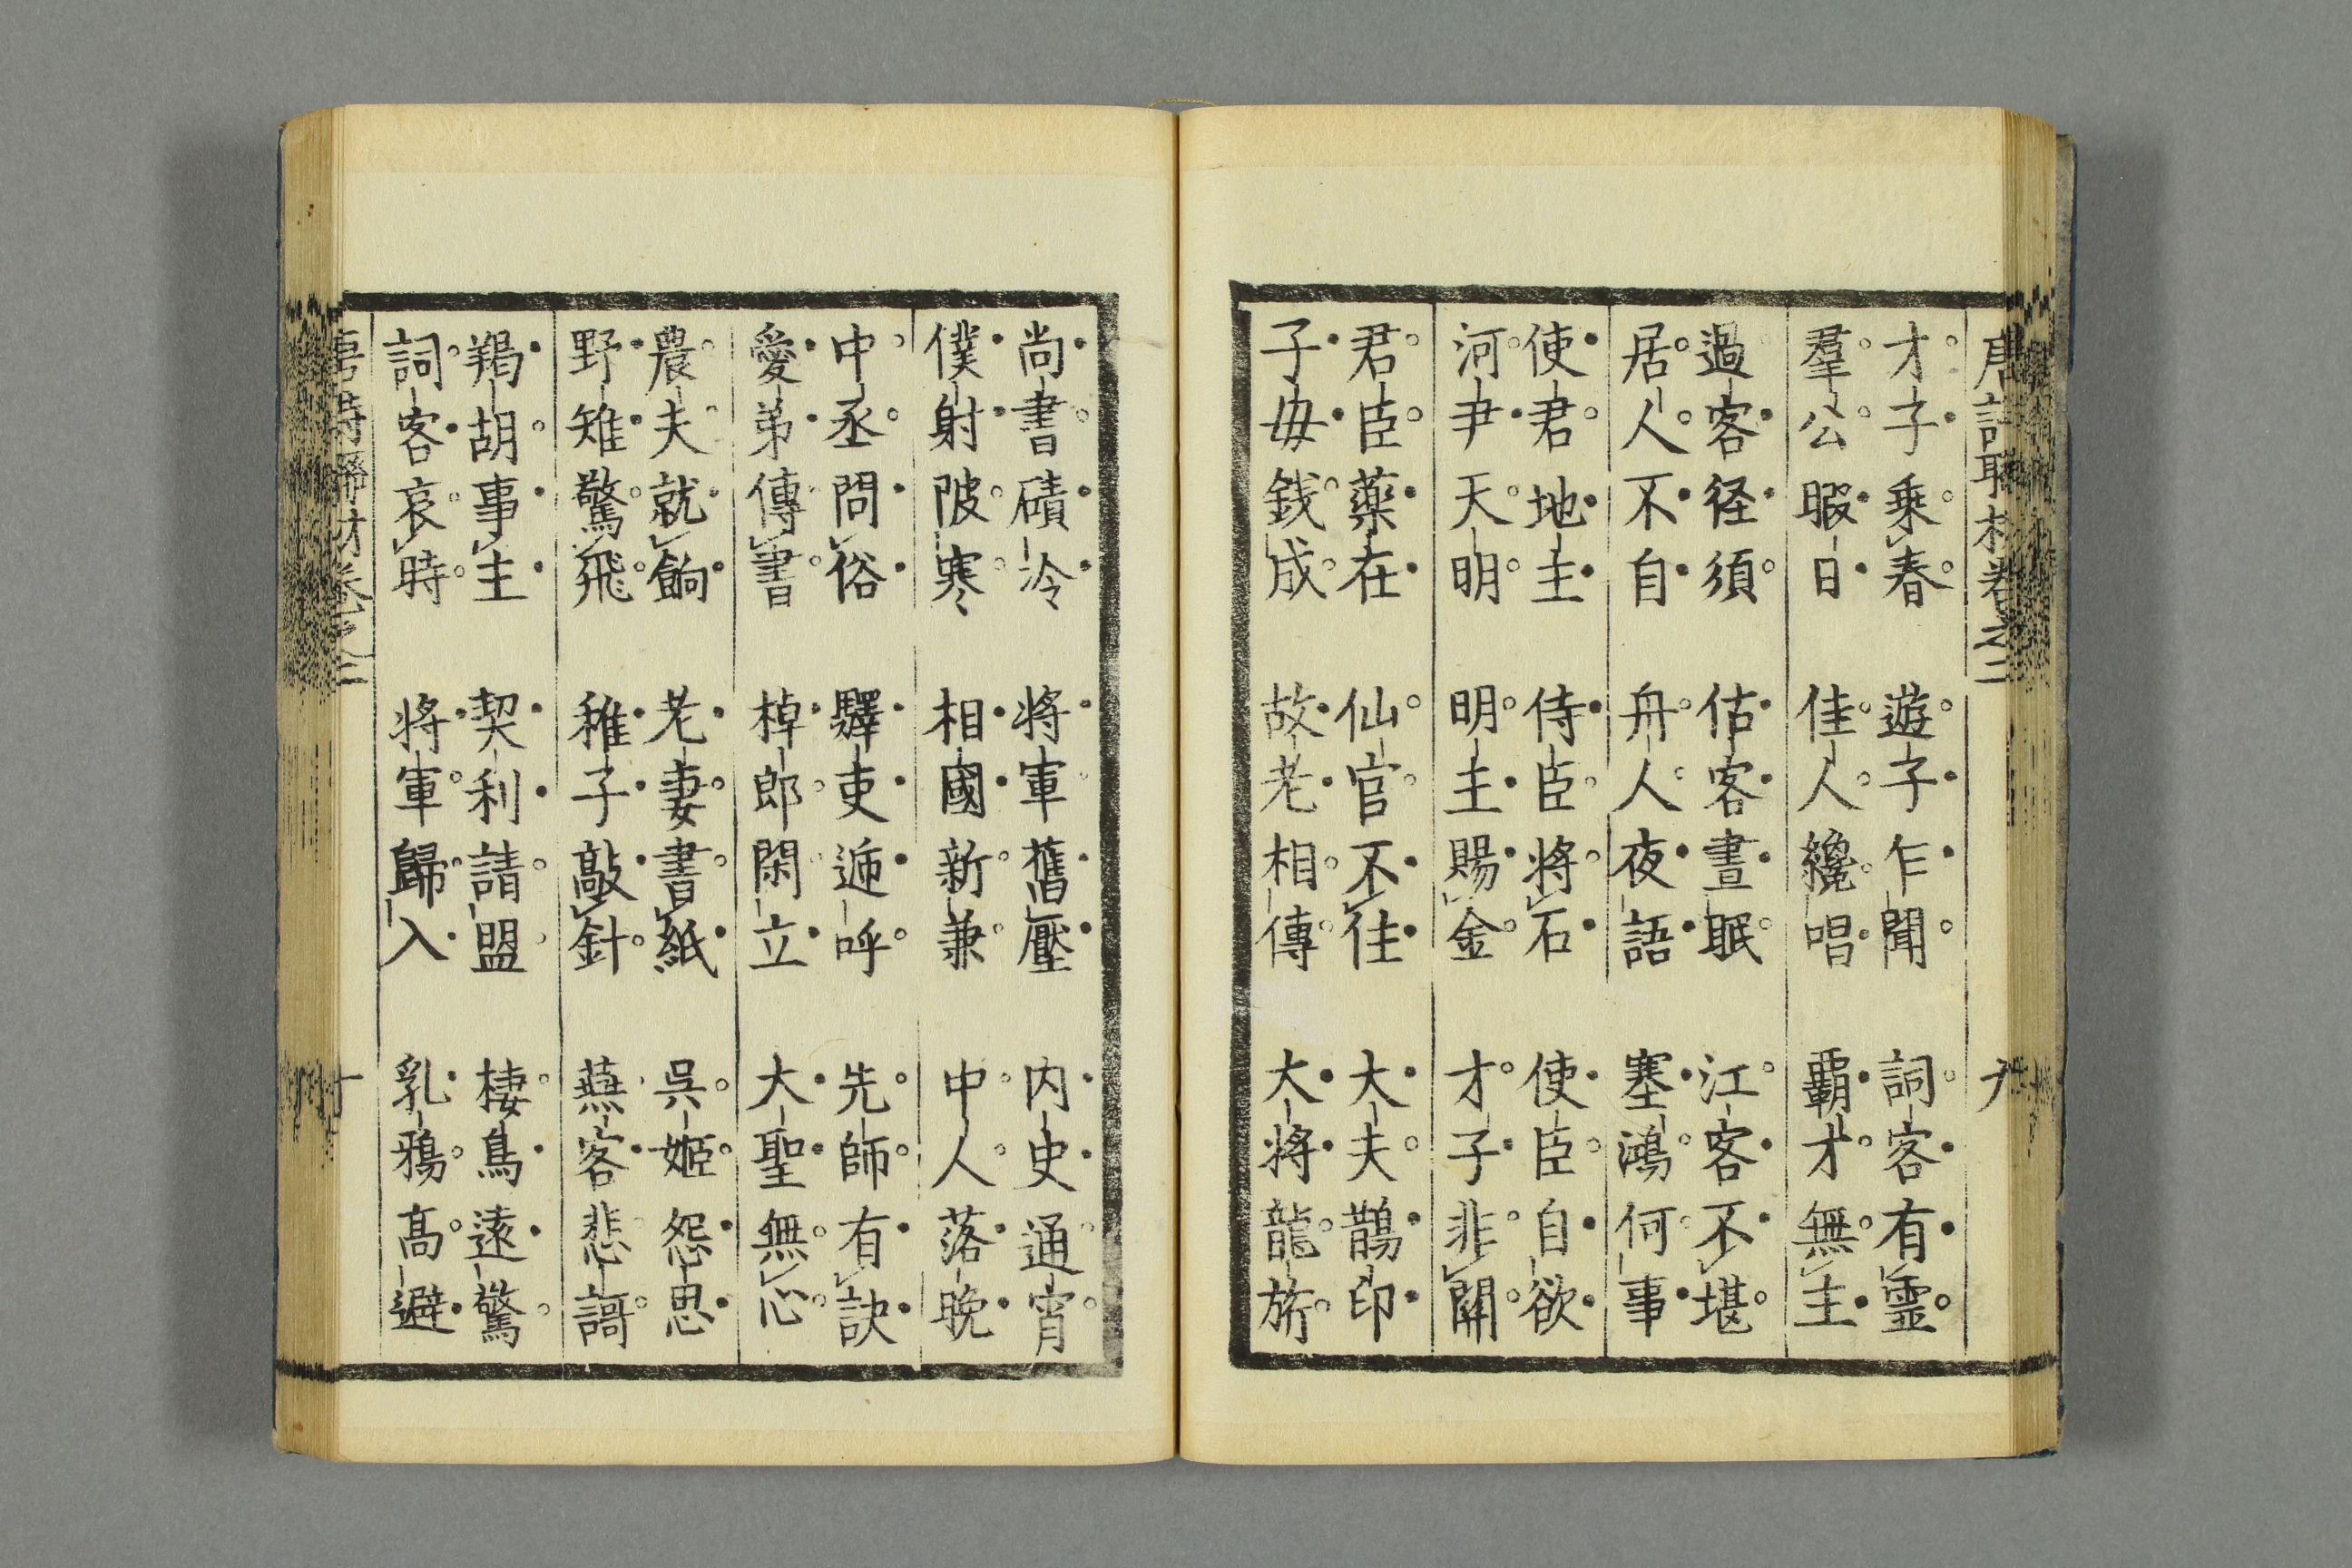 唐詩聯材卷之二 九
才子乘春 遊子乍聞 詞客有靈
羣公暇日 佳人纔唱 覇才無主
過客径須 估客晝眠 江客不堪
居人不自 舟人夜語 塞鴻何事
使君地主 侍臣將石 使臣自欲
河尹天明 明主賜金 才子非關
君臣藥在 仙官不住 大夫鵲印
子母銭成 故老相傳 大將龍旂
尚書磧冷 將軍舊壓 内史通宵
僕射陂寒 相國新兼 中人落晚
中丞問俗 驛吏遞呼 先師有訣
愛弟傳書 棹郎閑立 大聖無心
農夫就餉 老妻書紙 呉姬怨思
野雉驚飛 稚子敲針 燕客悲謌
羯胡事主 契利請盟 棲鳥遠驚
詞客哀時 將軍歸入 乳鴉高避
唐詩聯材卷之二 十